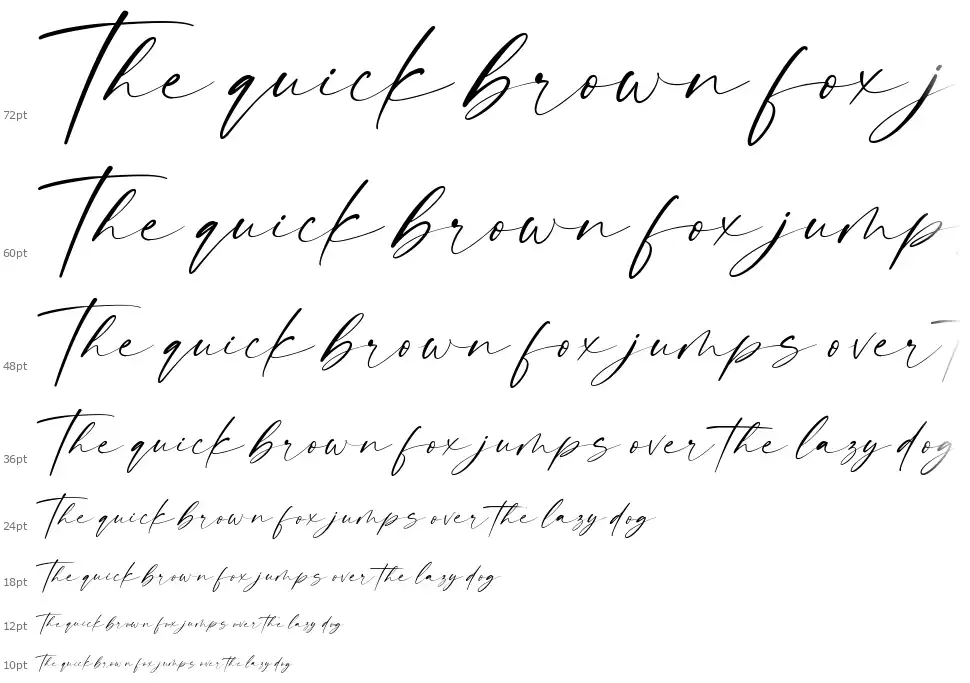 The quick brown fox j
72pt
The quick brown fox jump
60pt
The quick brown fox jumps over t
48pt
The quick brown fox jumps over the lazy dog
36pt
The quick brown fox jumps over the lazy dog
24pt
The quick brown fox jumps over the lazy dog
18pt
The quick brown fox jumps over the lazy dog
12pt
The quick brown fox jumps over the lazy dog
10pt